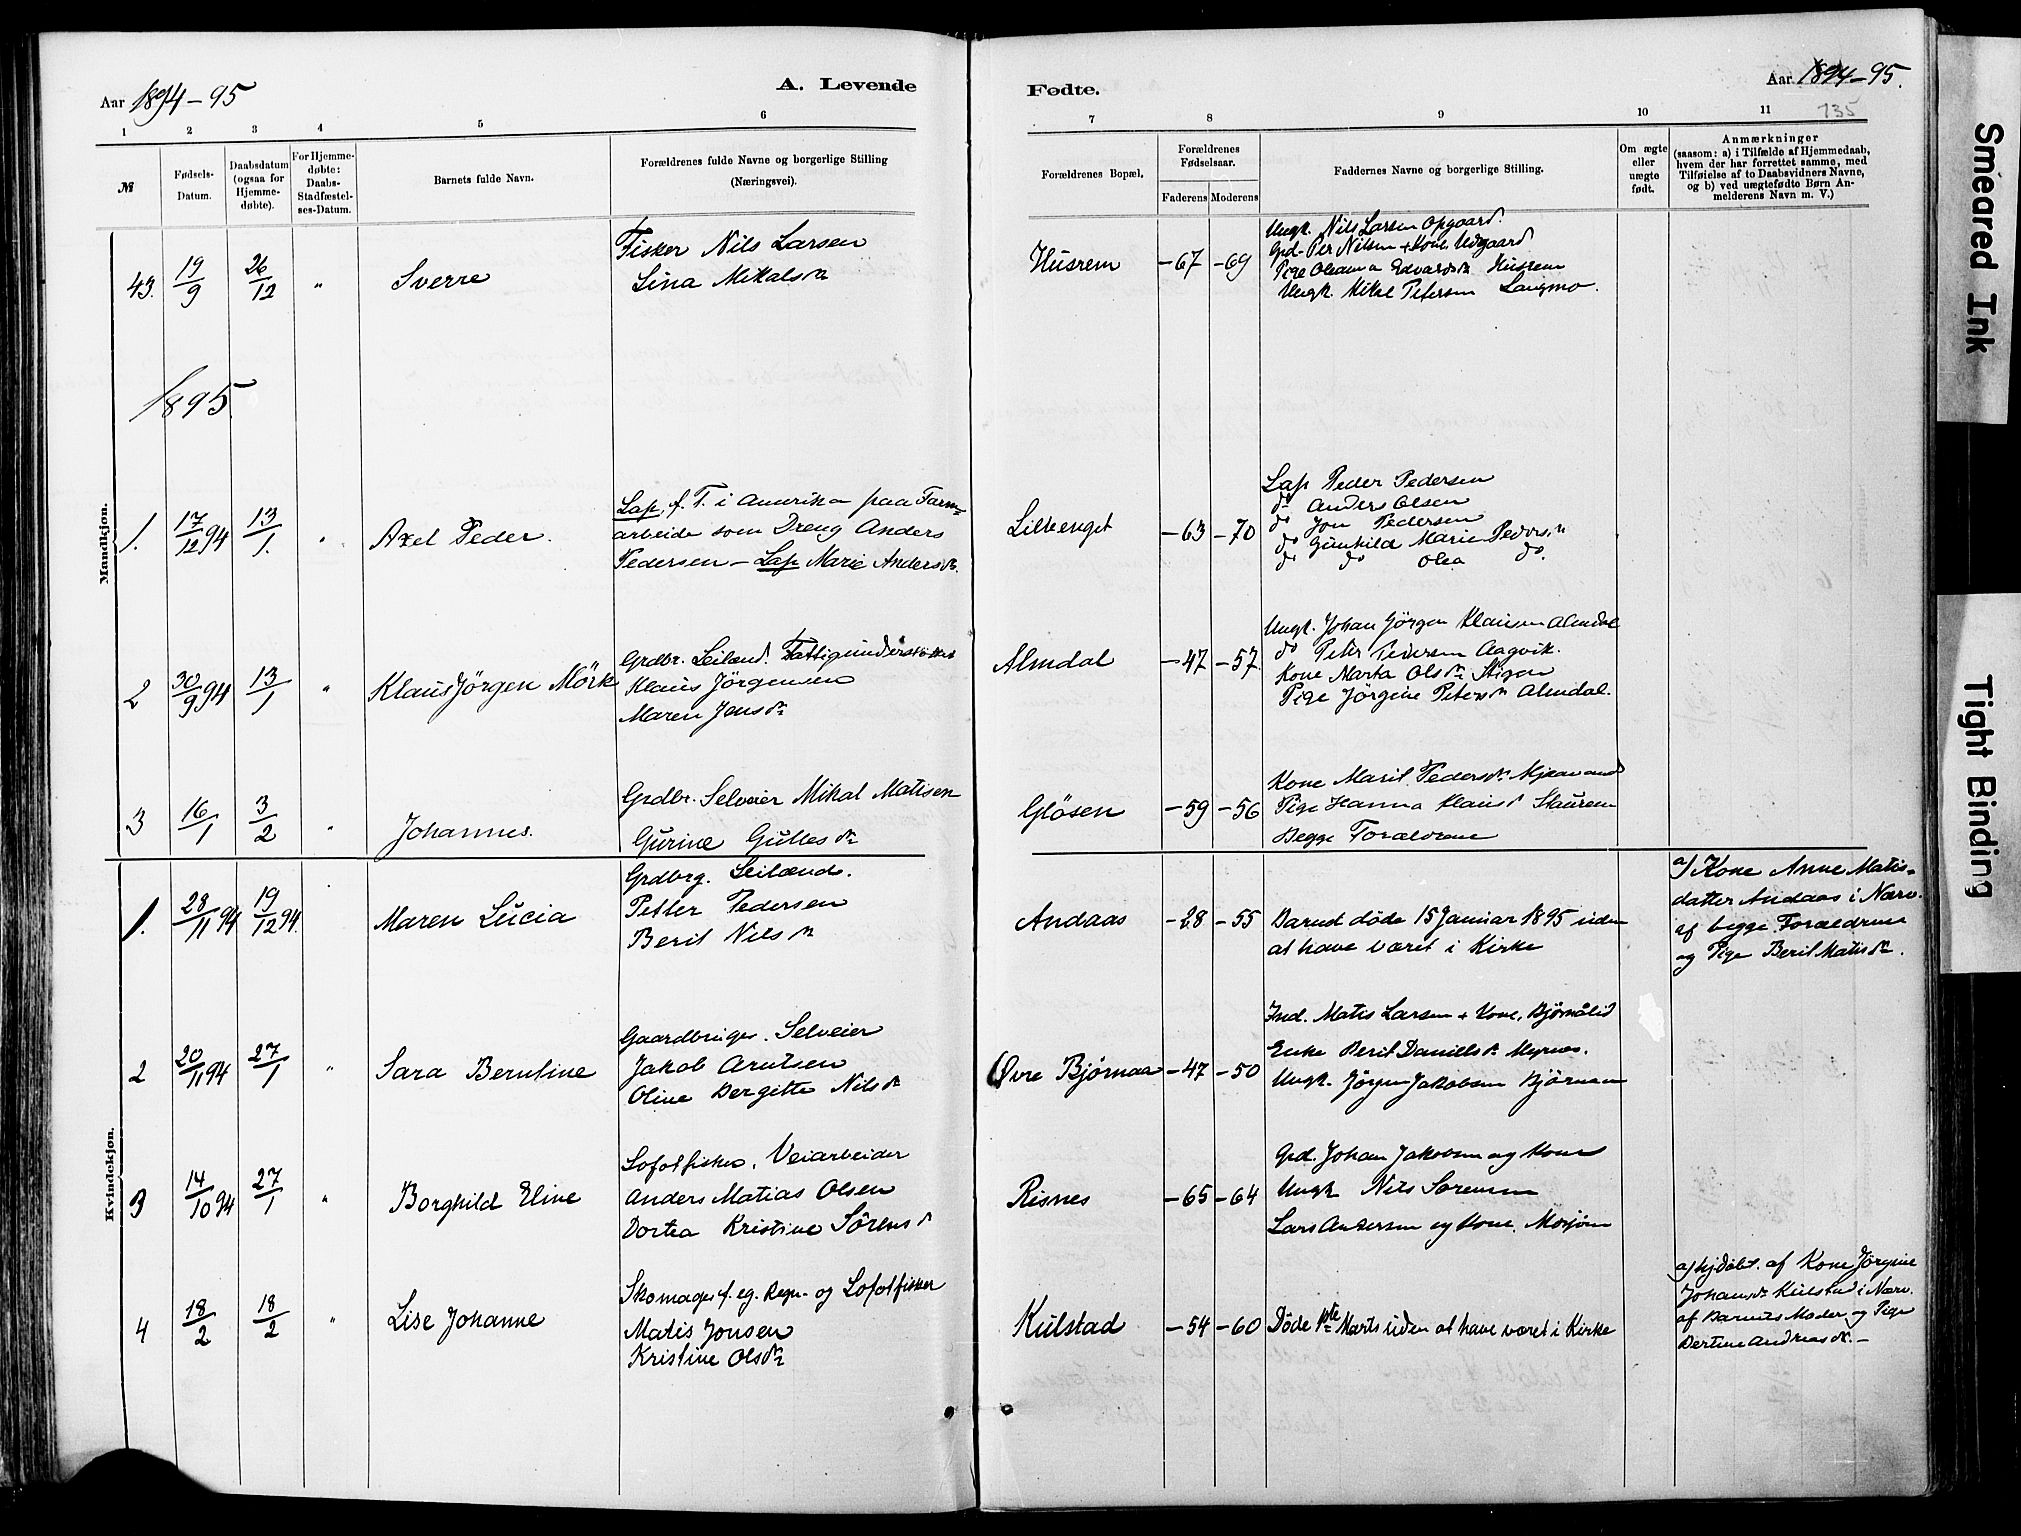 Aar 1894-95
A. Levende
Fødte.
Aar 1894-95.
135
1 2 3 4 5 6 7 8 9 10 11
№
Fødsels-
Datum.
Daabsdatum
(ogsaa for
Hjemme-
døbte).
For Hjemme-
døbte:
Daabs-
Stadfæstel-
ses-Datum.
Barnets fulde Navn.
Forældrenes fulde Navne og borgerlige Stilling
(Næringsvei).
Forældrenes Bopæl.
Forældrenes
Fødselsaar.
Faderens Moderens
Faddernes Navne og borgerlige Stilling.
Om ægte
eller
uægte
født.
Anmærkninger
(saasom: a) i Tilfælde af Hjemmedaab,
hvem der har forrettet samme, med
Tilføielse af to Daabsvidners Navne,
og b) ved uægtefødte Børn An-
melderens Navn m. V.)
Mandkjøn.
43. 19/9 26/12 " Sverre
Fisker Nils Larsen
Lina Mikalsdr
Husrem -67 -69
Ungk. Nils Larsen Opgaard.
Grd. Per Nilsen + Kone
Pige Oleana Edvardsdr Husrem
Ungk. Mikal Petersen Langmo.
1895
1. 17/12 94 13/1. " Axel Peder.
Lap, f. T. i Amerika paa Farm-
arbeide som Dreng Anders
Pedersen - Lap Marie Andersdr.
Lillenget -63 -70
Lap Peder Pedersen
do Anders Olsen
do Jon Pedersen
do Gunhild Marie Pedersdr
do do Olea do.
2 30/9 94 13/1 " Klaus Jörgen Mörk
Grdbr. Leilænd. Fattigunderstöttet
Klaus Jörgensen
Maren Jensdr
Almdal -47 -57.
Ungk. Johan Jörgen Klausen Almdal
do Peter Pedersen Aagvik.
Kone Marta Olsdr Stigen
Pige Jörgine Petersdr Almdal.
3 16/1 3/2 " Johannes.
Grdbr. Selveier Mikal Matisen
Gurine Gullesdr
Glösen -59 -56
Kone Marit Pedersdr
Pige Hanna Klausd
Begge Forældrene
Kvindekjøn.
1. 28/11 94 19/12 94. Maren Lucia
Grdbrg. Leilænd.
Petter Pedersen
Berit Nilsdr
Andaas -28 -55
Barnet döde 15 Januar 1895 uden
at have været i Kirke
a/ Kone Anne Matis-
datter Andaas i Nærv.
af begge Forældrene
og Pige Berit Matisdr.
2 20/11 94 27/1 " Sara Berntine
Gaardbruger. Selveier
Jakob Arntsen
Oline Bergitte Nilsdr
Øvre Bjørnaa -47 -50
Ind. Matis Larsen + Kone, Bjørnålid
Enke Berit Danielsdr Myrnes.
Ungk. Jörgen Jakobsen Bjørnaa
3 14/10 94 27/1 " Borghild Eline
Lofotfisker, Veiarbeider
Anders Matias Olsen
Dortea Kristine Sörensd
Risnes -65 -64
Grd. Johan Jakobsen og Kone
Ungk Nils Sörensen
Lars Andersen og Kone, Mosjøen
4 18/2 18/2 " Lise Johanne
Skomager f. eg. Regn- og Lofotfisker
Matis Jonsen
Kristine Olsdr
Kulstad -54 -60
Döde 1ste Marts uden at have været i Kirke
a/ hjdöbt. af Kone Jörgine
Johansdr Kulstad i Nærv.
af Barnets Moder og Pige
Bertine Andreasdr.-
Smeared Ink
Tight Binding